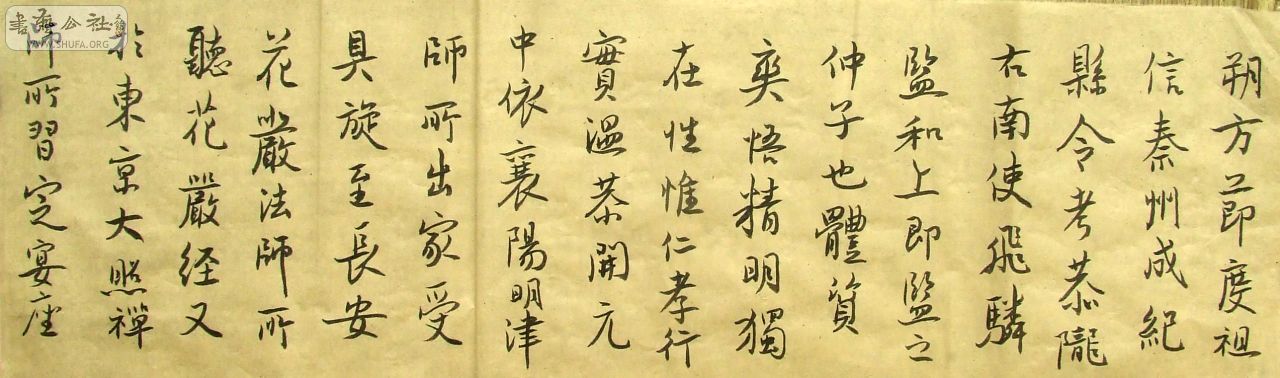 朔方節度祖
信秦州成紀
縣令考恭隴
右南使飛驎
監和上即監之
仲子也體資
爽悟精明獨
在性惟仁孝行
實溫恭開元
中依襄陽明津
師所出家受
具旋至長安
花嚴法師所
聽花嚴经又
於東京大照禪
師所習定宴座
書法公社
WWW.SHUFA.ORG